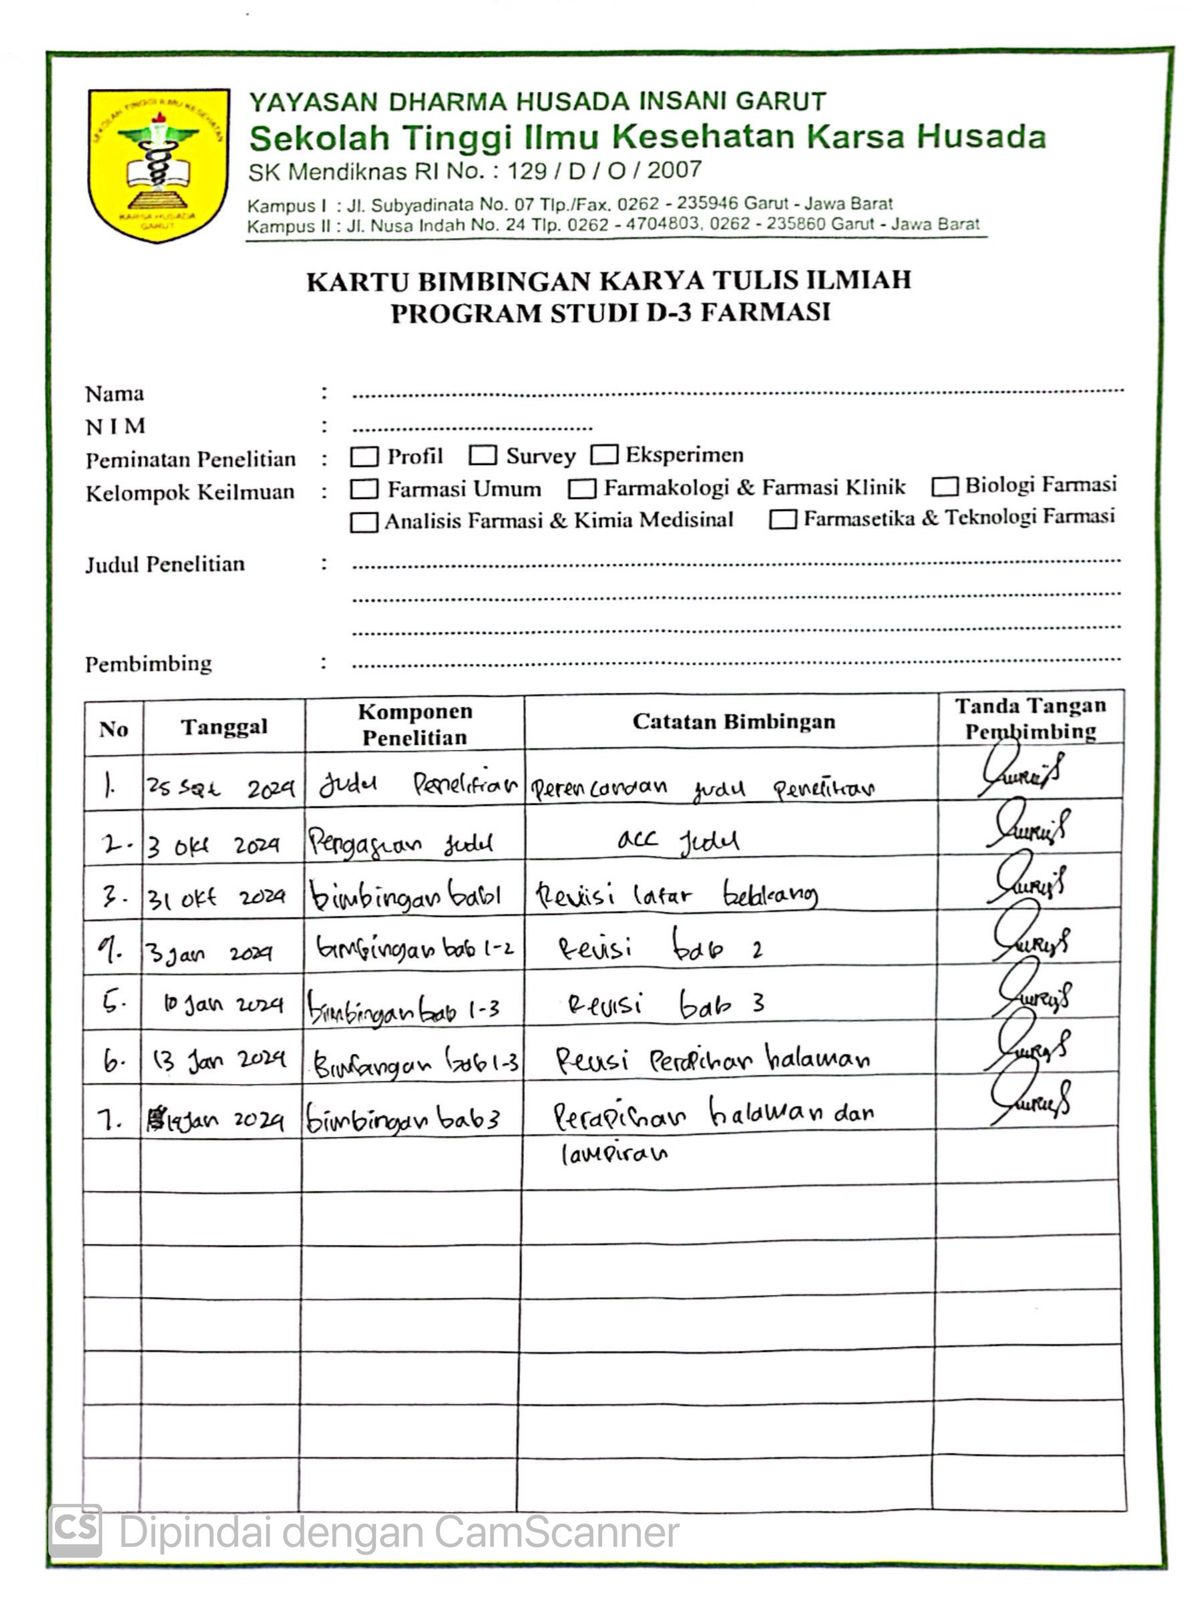 SEKOLAH TINGGI ILMU KESEHATAN
KARSA HUSADA
GARUT
YAYASAN DHARMA HUSADA INSANI GARUT
Sekolah Tinggi Ilmu Kesehatan Karsa Husada
SK Mendiknas RI No. : 129 / D / O / 2007
Kampus I : Jl. Subyadinata No. 07 Tlp./Fax. 0262 - 235946 Garut - Jawa Barat
Kampus II : Jl. Nusa Indah No. 24 Tlp. 0262 - 4704803, 0262 - 235860 Garut - Jawa Barat
KARTU BIMBINGAN KARYA TULIS ILMIAH
PROGRAM STUDI D-3 FARMASI
Nama :
N I M :
Peminatan Penelitian : Profil Survey Eksperimen
Kelompok Keilmuan : Farmasi Umum Farmakologi & Farmasi Klinik Biologi Farmasi
Analisis Farmasi & Kimia Medisinal Farmasetika & Teknologi Farmasi
Judul Penelitian :
Pembimbing :
No Tanggal Komponen Penelitian Catatan Bimbingan Tanda Tangan Pembimbing
1. 25 Sept 2024 Judul Penelitian Perencanaan judul penelitian
2. 3 Okt 2024 Pengajuan judul acc judul
3. 31 Okt 2024 bimbingan bab 1 Revisi latar belakang
4. 3 Jan 2024 bimbingan bab 1-2 Revisi bab 2
5. 10 Jan 2024 bimbingan bab 1-3 Revisi bab 3
6. 13 Jan 2024 Bimbingan bab 1-3 Revisi Perapihan halaman
7. Jan 2024 bimbingan bab 3 Perapihan halaman dan
lampiran
CS Dipindai dengan CamScanner